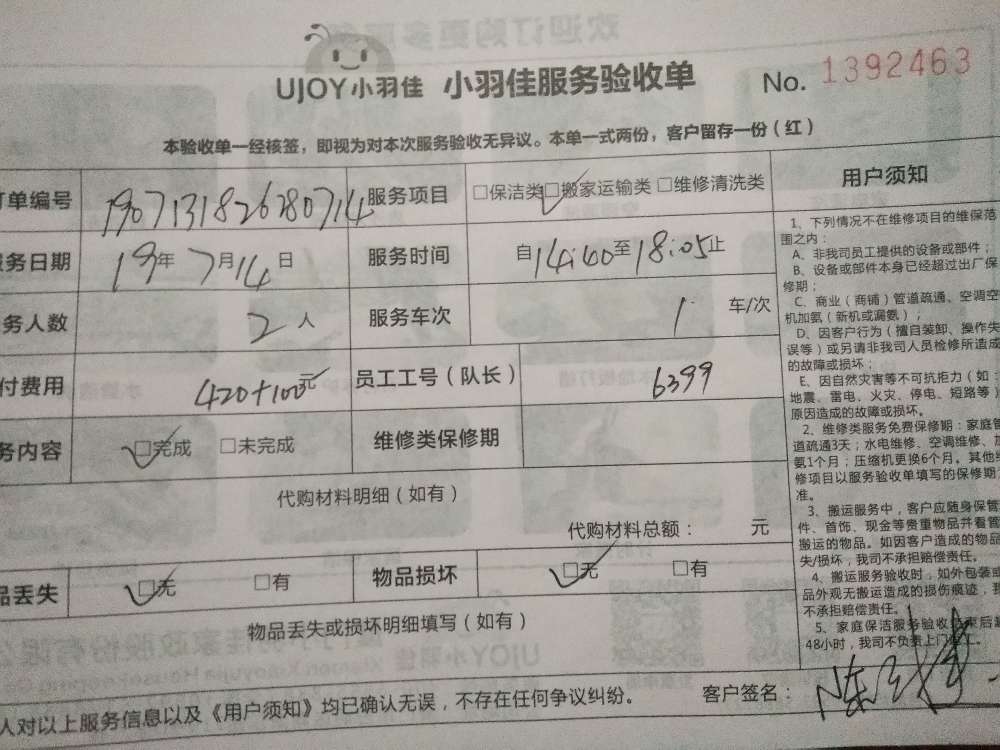 UJOY小羽佳 小羽佳服务验收单 No. 1392463
本验收单一经核签，即视为对本次服务验收无异议。本单一式两份，客户留存一份（红）
订单编号 1907131826280714 服务项目 □保洁类 □搬家运输类 □维修清洗类
服务日期 19年7月14日 服务时间 自14:40至18:05止
务人数 2人 服务车次 1 车/次
付费用 420+100元 员工工号（队长） 6399
务内容 □完成 □未完成 维修类保修期
代购材料明细（如有）
代购材料总额： 元
品丢失 □无 □有 物品损坏 □无 □有
物品丢失或损坏明细填写（如有）
人对以上服务信息以及《用户须知》均已确认无误，不存在任何争议纠纷。 客户签名：
用户须知
1、下列情况不在维修项目的维保范
围之内：
A、非我司员工提供的设备或部件；
B、设备或部件本身已经超过出厂保
修期；
C、商业（商铺）管道疏通、空调空
机加氨（新机或漏氨）；
D、因客户行为（擅自装卸、操作失
误等）或另请非我司人员检修所造成
的故障或损坏；
E、因自然灾害等不可抗拒力（如：
地震、雷电、火灾、停电、短路等）
原因造成的故障或损坏。
2、维修类服务免费保修期：家庭管
道疏通3天；水电维修、空调维修、加
氨1个月；压缩机更换6个月。其他维
修项目以服务验收单填写的保修期
准。
3、搬运服务中，客户应随身保管
件、首饰、现金等贵重物品并看管
搬运的物品。如因客户造成的物品
失/损坏，我司不承担赔偿责任。
4、搬运服务验收时，如外包装或
品外观无搬运造成的损伤痕迹，我
不承担赔偿责任。
5、家庭保洁服务验收结束后超
48小时，我司不负责上门